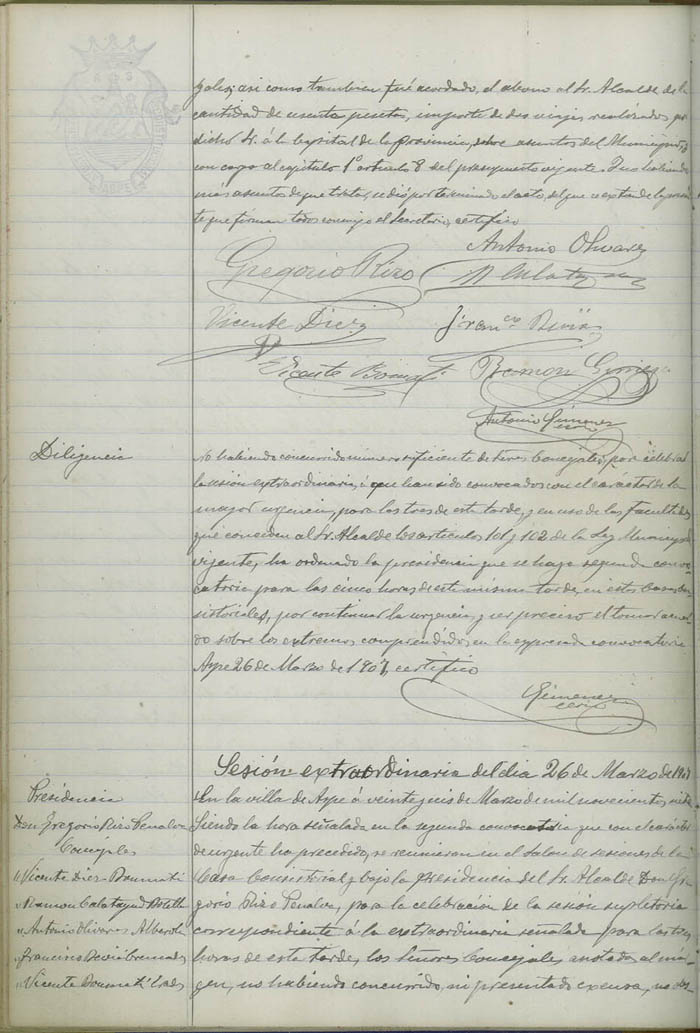 pales; asi como tambien fué acordado, el abono al Sr. Alcalde de la
cantidad de sesenta pesetas, importe de dos viajes realizados por
dicho Sr. á la Capital de la provincia, sobre asuntos del Municipio, y
con cargo al capitulo 1º articulo 8 del presupuesto vigente. Y no habiendo
más asuntos de que tratar, se dió por terminado el acto, del que se extiende la presen-
te que firman todos conmigo el Secretario, certifico
Antonio Olivares
Gregorio Rizo
Vicente Diez
Vicente Bonmati
Ramon Gimenez
Antonio Gimenez
Diligencia
No habiendo concurrido número suficiente de Sres. Concejales, por celebrar
la sesión extraordinaria, á que han sido convocados con el carácter de la
mayor urgencia, para las tres de este tarde, y en uso de las facultades
que conceden al Sr. Alcalde los artículos 101 y 102 de la Ley Municipal
vigente, ha ordenado la presidencia que se haga segunda convo-
catoria para las cinco horas de este misma tarde, en estas Casas Con-
sistoriales, por continuar la urgencia y ser preciso el tomar acuer-
do sobre los extremos comprendidos en la expresada convocatoria
Aspe 26 de Marzo de 1907, certifico
Gimenez
Sesión extraordinaria del dia 26 de Marzo de 1907
Presidencia
Don Gregorio Rizo Penalva
Concejales
" Vicente Diez Bonmati
" Ramon Calatayud Botella
" Antonio Olivares Alberola
" Francisco Cremades
" Vicente Bonmati
En la villa de Aspe á veinte seis de Marzo de mil novecientos siete
Siendo la hora señalada en la segunda convocatoria que con el carácter
de urgente ha precedido, se reunieron en el Salon de sesiones de la
Casa Consistorial y bajo la Presidencia del Sr. Alcalde Don Gre-
gorio Rizo Penalva, para la celebración de la sesión supletoria
correspondiente á la extraordinaria señalada para las tres
horas de esta tarde, los Señores Concejales anotados al már-
gen, no habiendo concurrido, ni presentado excusa, no obs-